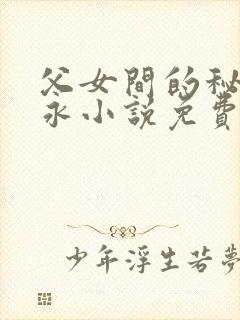 父女間的秘
永小説免費
少年浮生若夢